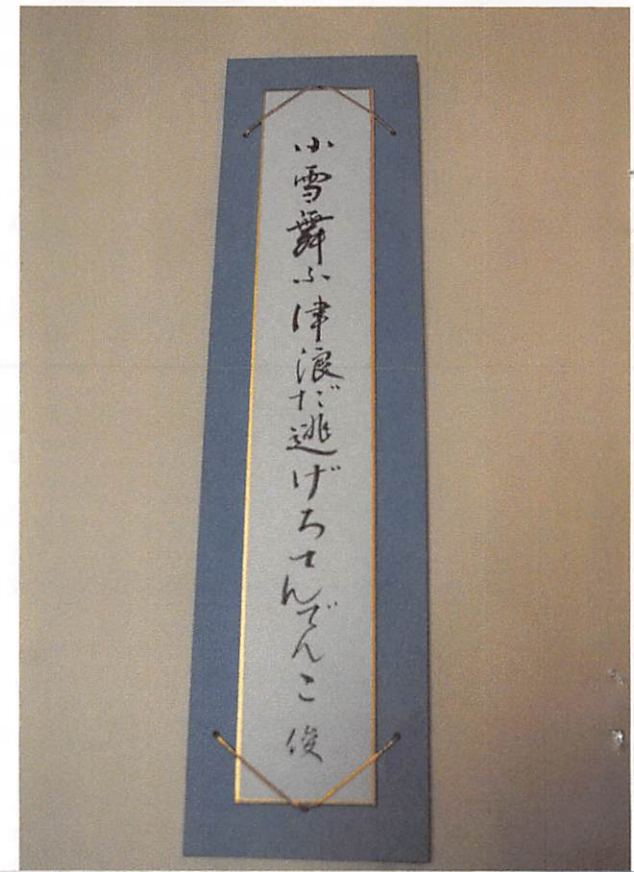 小雪舞ふ津浪だ逃げろてんでんこ 俊